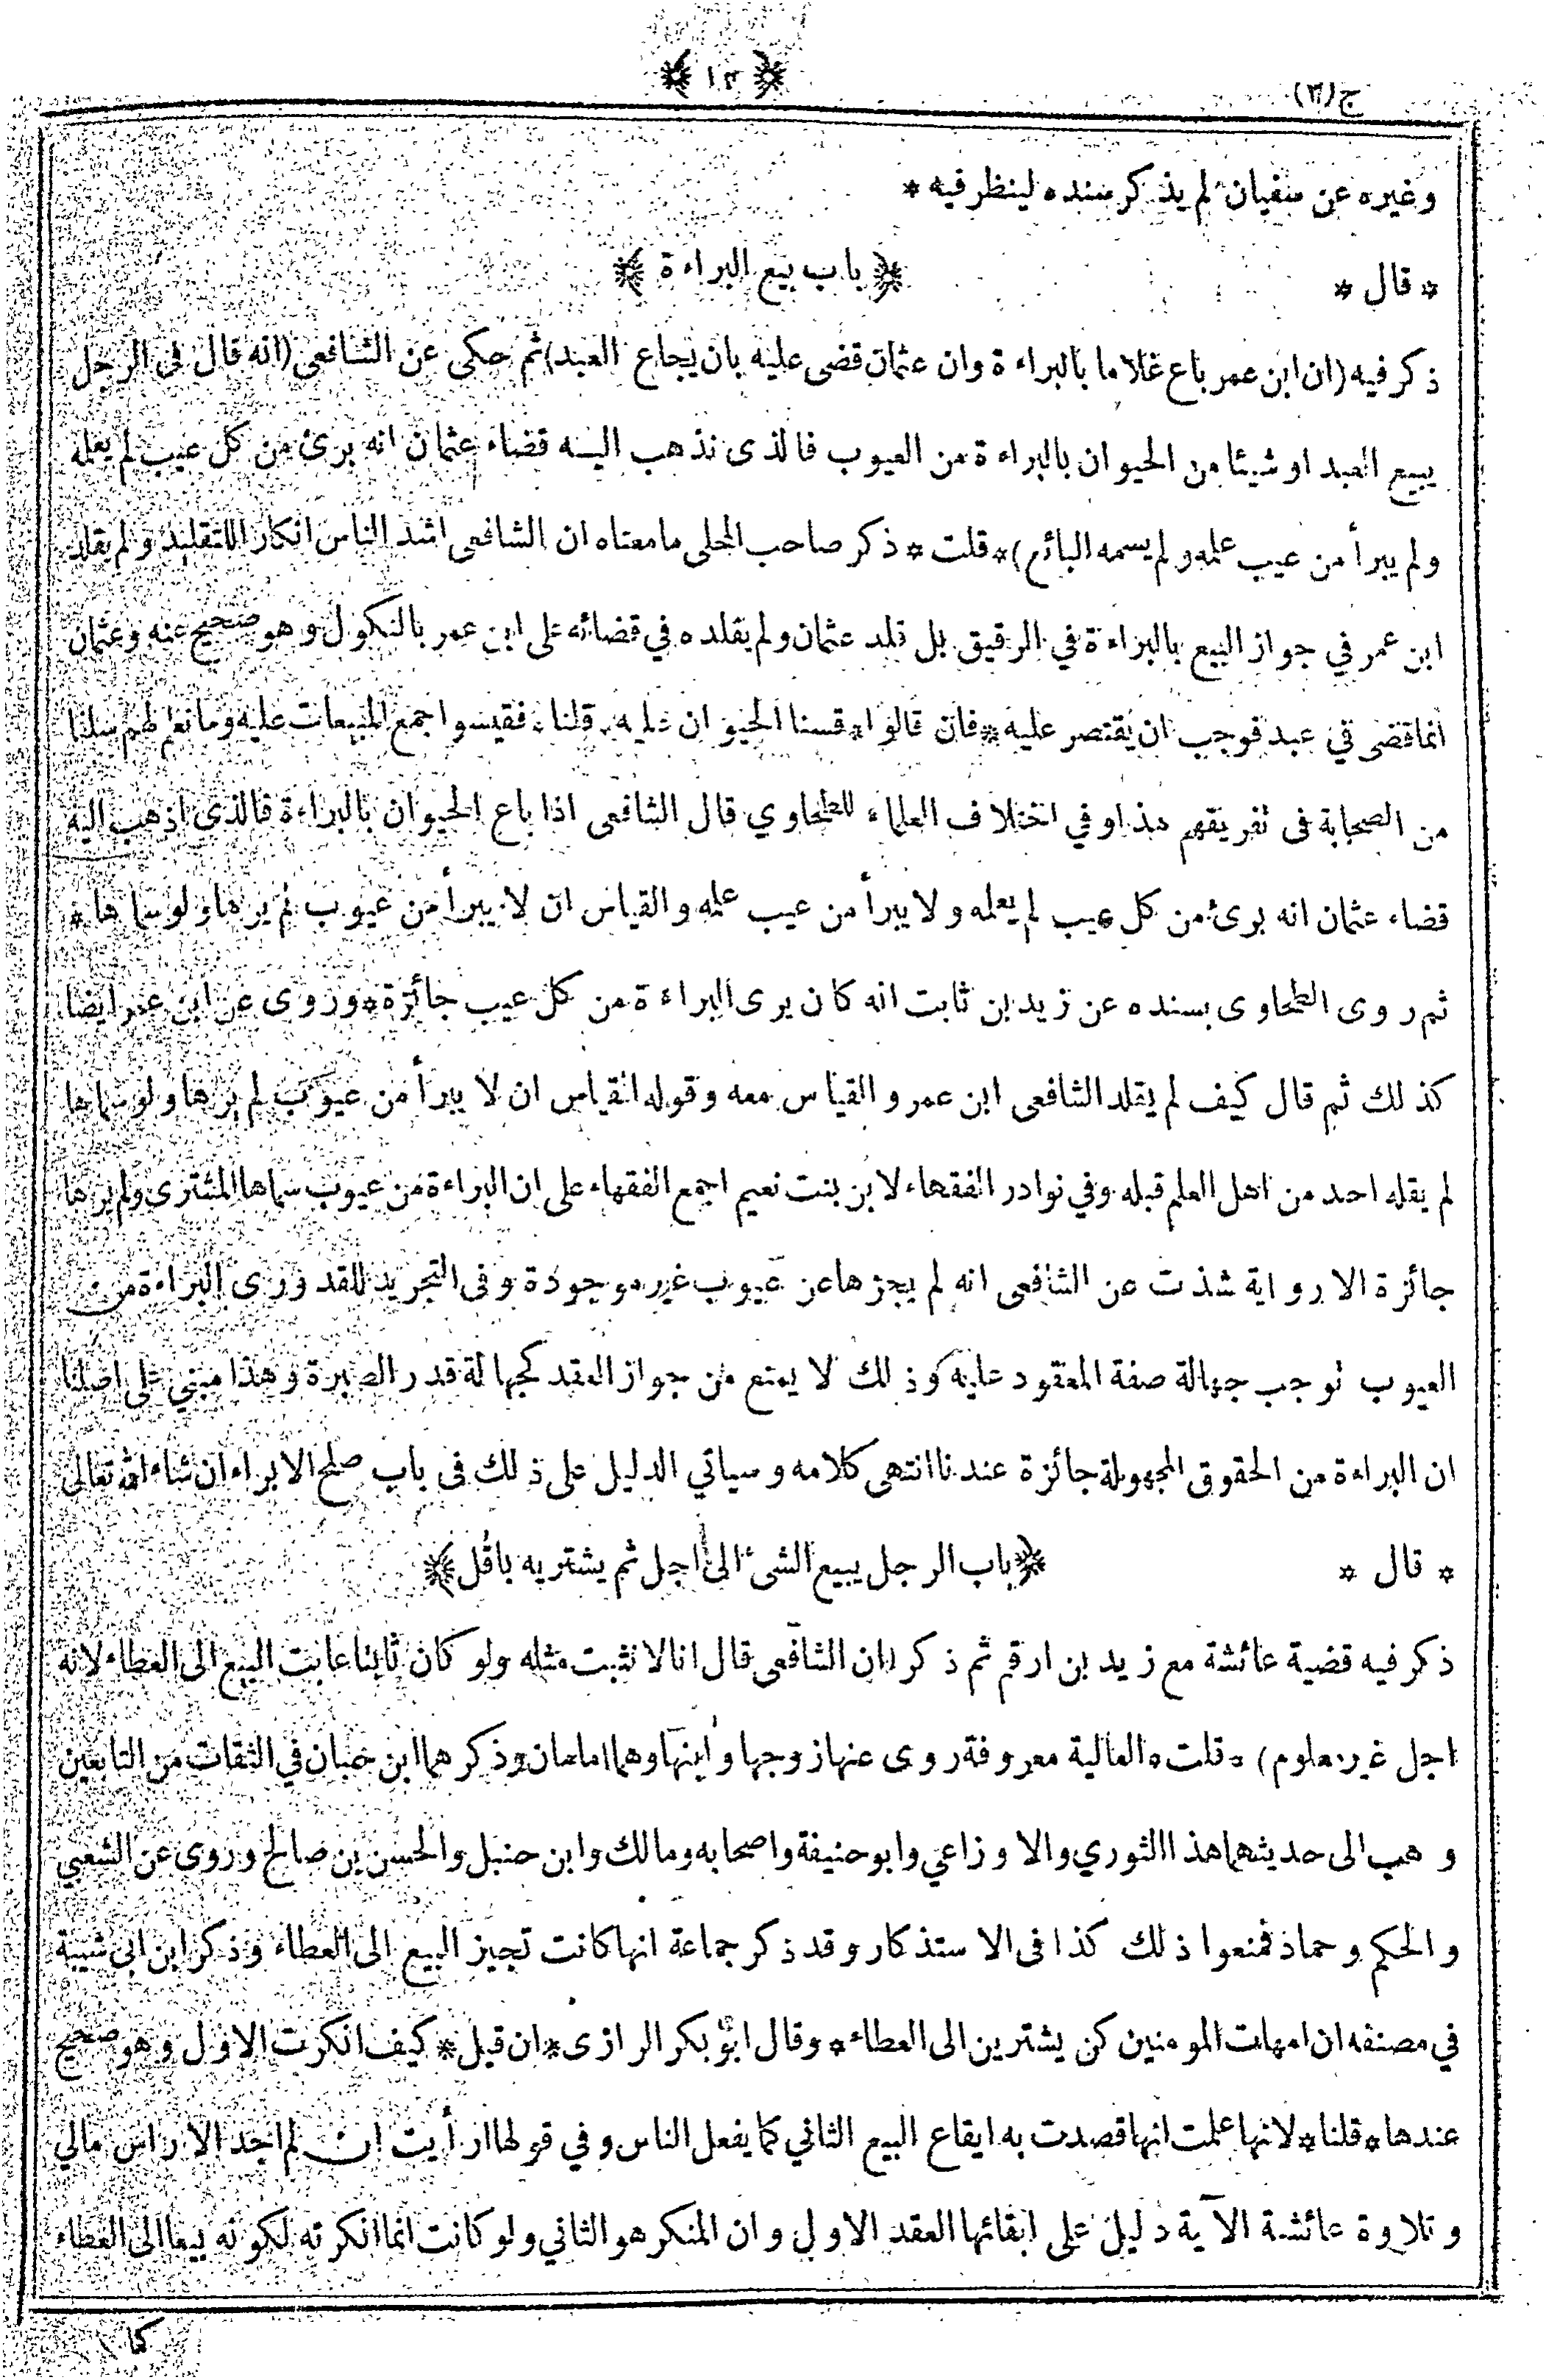 ج(٣)
﴿ ١٣ ﴾
وغيره عن سفيان لم يذكر سنده لينظر فيه *
* قال *
﴿ باب بيع البراءة ﴾
ذكر فيه (ان ابن عمر باع غلاما بالبراءة وان عثمان قضى عليه بان يجاع العبد) ثم حكى عن الشافعى (انه قال فى الرجل
يبيع العبد او شيئا من الحيوان بالبراءة من العيوب فالذى نذهب اليه قضاء عثمان انه برئ من كل عيب لم يعلمه
ولم يبرأ من عيب علمه ولم يسمه البائع) * قلت * ذكر صاحب المحلى ما معناه ان الشافعى اشد الناس انكارا للتقليد ولم يقلد
ابن عمر في جواز البيع بالبراءة في الرقيق بل قلد عثمان ولم يقلده في قضائه على ابن عمر بالنكول وهو صحيح عنه وعثمان
انما قضى في عبد فوجب ان يقتصر عليه * فان قالوا * قسنا الحيوان عليه * قلنا * فقيسوا جميع المبيعات عليه وما نعلم لهم سلفا
من الصحابة فى تفريقهم هذا وفي اختلاف العلماء للطحاوي قال الشافعى اذا باع الحيوان بالبراءة فالذى اذهب اليه
قضاء عثمان انه برئ من كل عيب لم يعلمه ولا يبرأ من عيب علمه والقياس ان لا يبرأ من عيوب لم يرها ولو سماها *
ثم روى الطحاوى بسنده عن زيد بن ثابت انه كان يرى البراءة من كل عيب جائزة * وروى عن ابن عمر ايضا
كذلك ثم قال كيف لم يقلد الشافعى ابن عمر والقياس معه وقوله القياس ان لا يبرأ من عيوب لم يرها ولو سماها
لم يقله احد من اهل العلم قبله وفي نوادر الفقهاء لابن بنت نعيم اجمع الفقهاء على ان البراءة من عيوب سماها المشترى ولم يرها
جائزة الا رواية شذت عن الشافعى انه لم يجزها عن عيوب غير موجودة وفى التجريد للقدورى البراءة من
العيوب توجب جهالة صفة المعقود عليه وذلك لا يمنع من جواز العقد كجهالة قدر الصبرة وهذا مبني على اصلنا
ان البراءة من الحقوق المجهولة جائزة عندنا انتهى كلامه وسياتي الدليل على ذلك فى باب صلح الابراء ان شاء الله تعالى
* قال *
﴿ باب الرجل يبيع الشئ الى اجل ثم يشتريه باقل ﴾
ذكر فيه قضية عائشة مع زيد بن ارقم ثم ذكر (ان الشافعى قال انا لا نثبت مثله ولو كان ثابتا عابت البيع الى العطاء لانه
اجل غير معلوم) * قلت * العالية معروفة روى عنها زوجها وابنها وهما امامان وذكرهما ابن حبان في الثقات من التابعين
و هب الى حديثهما هذا الثوري والاوزاعي وابو حنيفة واصحابه ومالك وابن حنبل والحسن بن صالح وروى عن الشعبي
والحكم وحماد فمنعوا ذلك كذا فى الاستذكار وقد ذكر جماعة انها كانت تجيز البيع الى العطاء وذكر ابن ابى شيبة
في مصنفه ان امهات المومنين كن يشترين الى العطاء * وقال ابو بكر الرازى * ان قيل * كيف انكرت الاول وهو صحيح
عندها * قلنا * لانها علمت انها قصدت به ايقاع البيع الثاني كما يفعل الناس وفي قولها ارأيت ان لم اجد الا راس مالي
وتلاوة عائشة الآية دليل على ابقائها العقد الاول وان المنكر هو الثاني ولو كانت انما انكرته لكونه بيعا الى العطاء
كما